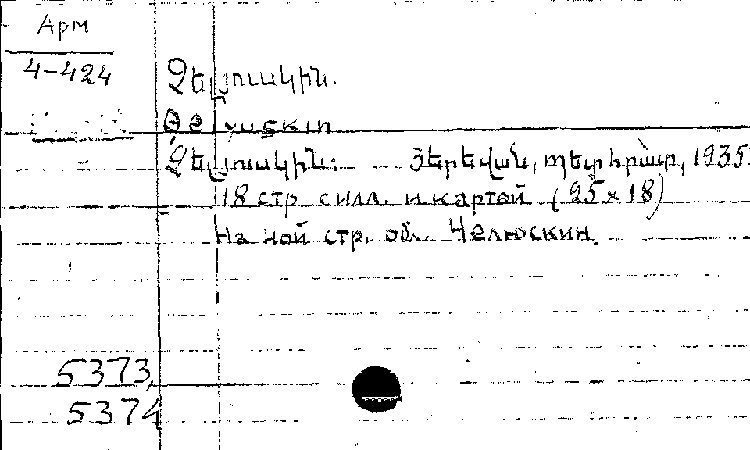 Арм
4-424
Չելուսկին.
Չելուսկին: Յերեվան, պետհրատ, 1935.
18 стр. с илл. и картой (25 x 18)
На ной стр. обл. Челюскин.
5373,
5374